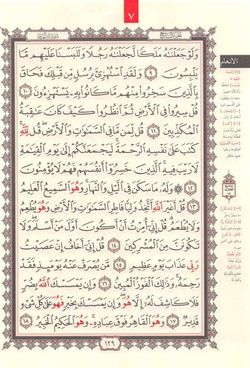 ٧
الأنعام
وَلَوْ جَعَلْنَٰهُ مَلَكًا لَّجَعَلْنَٰهُ رَجُلًا وَلَلَبَسْنَا عَلَيْهِم مَّا
يَلْبِسُونَ ٩ وَلَقَدِ ٱسْتُهْزِئَ بِرُسُلٍ مِّن قَبْلِكَ فَحَاقَ
بِٱلَّذِينَ سَخِرُوا۟ مِنْهُم مَّا كَانُوا۟ بِهِۦ يَسْتَهْزِءُونَ ١٠
قُلْ سِيرُوا۟ فِى ٱلْأَرْضِ ثُمَّ ٱنظُرُوا۟ كَيْفَ كَانَ عَٰقِبَةُ
ٱلْمُكَذِّبِينَ ١١ قُل لِّمَن مَّا فِى ٱلسَّمَٰوَٰتِ وَٱلْأَرْضِ قُل لِّلَّهِ
كَتَبَ عَلَىٰ نَفْسِهِ ٱلرَّحْمَةَ لَيَجْمَعَنَّكُمْ إِلَىٰ يَوْمِ ٱلْقِيَٰمَةِ
لَا رَيْبَ فِيهِ ٱلَّذِينَ خَسِرُوٓا۟ أَنفُسَهُمْ فَهُمْ لَا يُؤْمِنُونَ
١٢ وَلَهُۥ مَا سَكَنَ فِى ٱلَّيْلِ وَٱلنَّهَارِ وَهُوَ ٱلسَّمِيعُ ٱلْعَلِيمُ
١٣ قُلْ أَغَيْرَ ٱللَّهِ أَتَّخِذُ وَلِيًّا فَاطِرِ ٱلسَّمَٰوَٰتِ وَٱلْأَرْضِ وَهُوَ يُطْعِمُ
وَلَا يُطْعَمُ قُلْ إِنِّىٓ أُمِرْتُ أَنْ أَكُونَ أَوَّلَ مَنْ أَسْلَمَ وَلَا
تَكُونَنَّ مِنَ ٱلْمُشْرِكِينَ ١٤ قُلْ إِنِّىٓ أَخَافُ إِنْ عَصَيْتُ
رَبِّى عَذَابَ يَوْمٍ عَظِيمٍ ١٥ مَّن يُصْرَفْ عَنْهُ يَوْمَئِذٍ فَقَدْ
رَحِمَهُۥ وَذَٰلِكَ ٱلْفَوْزُ ٱلْمُبِينُ ١٦ وَإِن يَمْسَسْكَ ٱللَّهُ بِضُرٍّ
فَلَا كَاشِفَ لَهُۥٓ إِلَّا هُوَ وَإِن يَمْسَسْكَ بِخَيْرٍ فَهُوَ عَلَىٰ كُلِّ شَىْءٍ
قَدِيرٌ ١٧ وَهُوَ ٱلْقَاهِرُ فَوْقَ عِبَادِهِۦ وَهُوَ ٱلْحَكِيمُ ٱلْخَبِيرُ ١٨
١٢٩